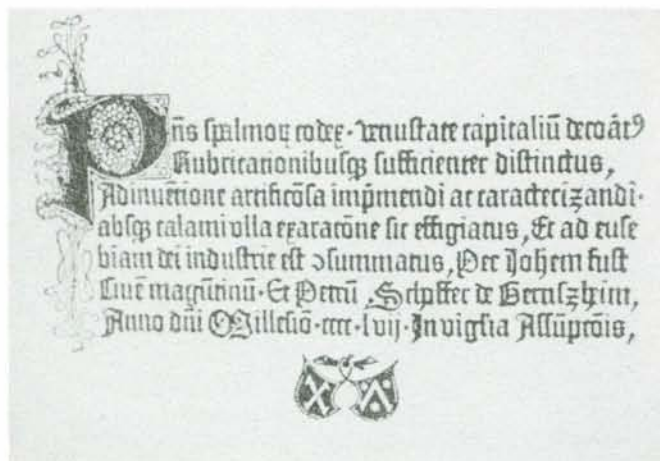 Pn̄s spalmoꝝ codex · venustate capitaliū decoāt⁹
Rubricationibusꝫ sufficienter distinctus,
Adinuētione artificōsa imp̄mendi ac caracterizandi ·
absꝫ calami vlla exaracōne sic effigiatus, Et ad euse
biam dei industrie est ↄsummatus, Per Johem fust
Ciuē magūtinū · Et Petrū Schoffer de Gernszheim,
Anno dn̄i Millesio · cccc · lvij · In vigīlia Assūpcōis,